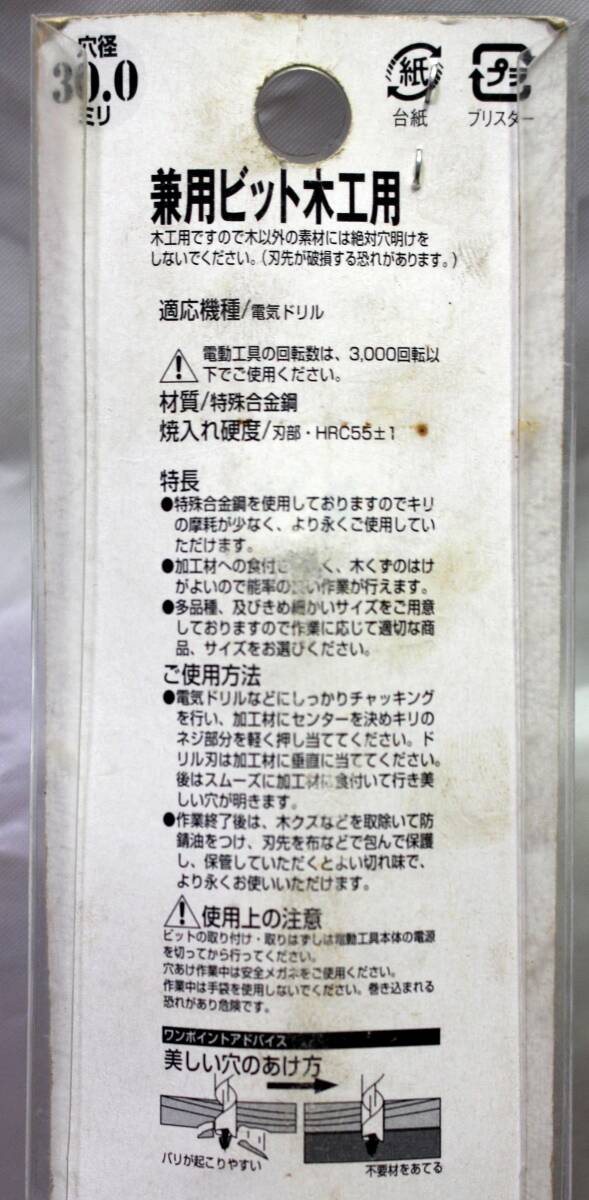 穴径
30.0
ミリ
紙
台紙
プラ
ブリスター
兼用ビット木工用
木工用ですので木以外の素材には絶対穴明けを
しないでください。(刃先が破損する恐れがあります。)
適応機種/電気ドリル
電動工具の回転数は、3,000回転以
下でご使用ください。
材質/特殊合金鋼
焼入れ硬度/刃部・HRC55±1
特長
●特殊合金鋼を使用しておりますのでキリ
の摩耗が少なく、より永くご使用してい
ただけます。
●加工材への食付き く、木くずのはけ
がよいので能率の い作業が行えます。
●多品種、及びきめ細かいサイズをご用意
しておりますので作業に応じて適切な商
品、サイズをお選びください。
ご使用方法
●電気ドリルなどにしっかりチャッキング
を行い、加工材にセンターを決めキリの
ネジ部分を軽く押し当ててください。ド
リル刃は加工材に垂直に当ててください。
後はスムーズに加工材に食付いて行き美
しい穴が明きます。
●作業終了後は、木クズなどを取除いて防
錆油をつけ、刃先を布などで包んで保護
し、保管していただくとよい切れ味で、
より永くお使いいただけます。
使用上の注意
ビットの取り付け・取りはずしは電動工具本体の電源
を切ってから行ってください。
穴あけ作業中は安全メガネをご使用ください。
作業中は手袋を使用しないでください。巻き込まれる
恐れがあり危険です。
ワンポイントアドバイス
美しい穴のあけ方
バリが起こりやすい
不要材をあてる